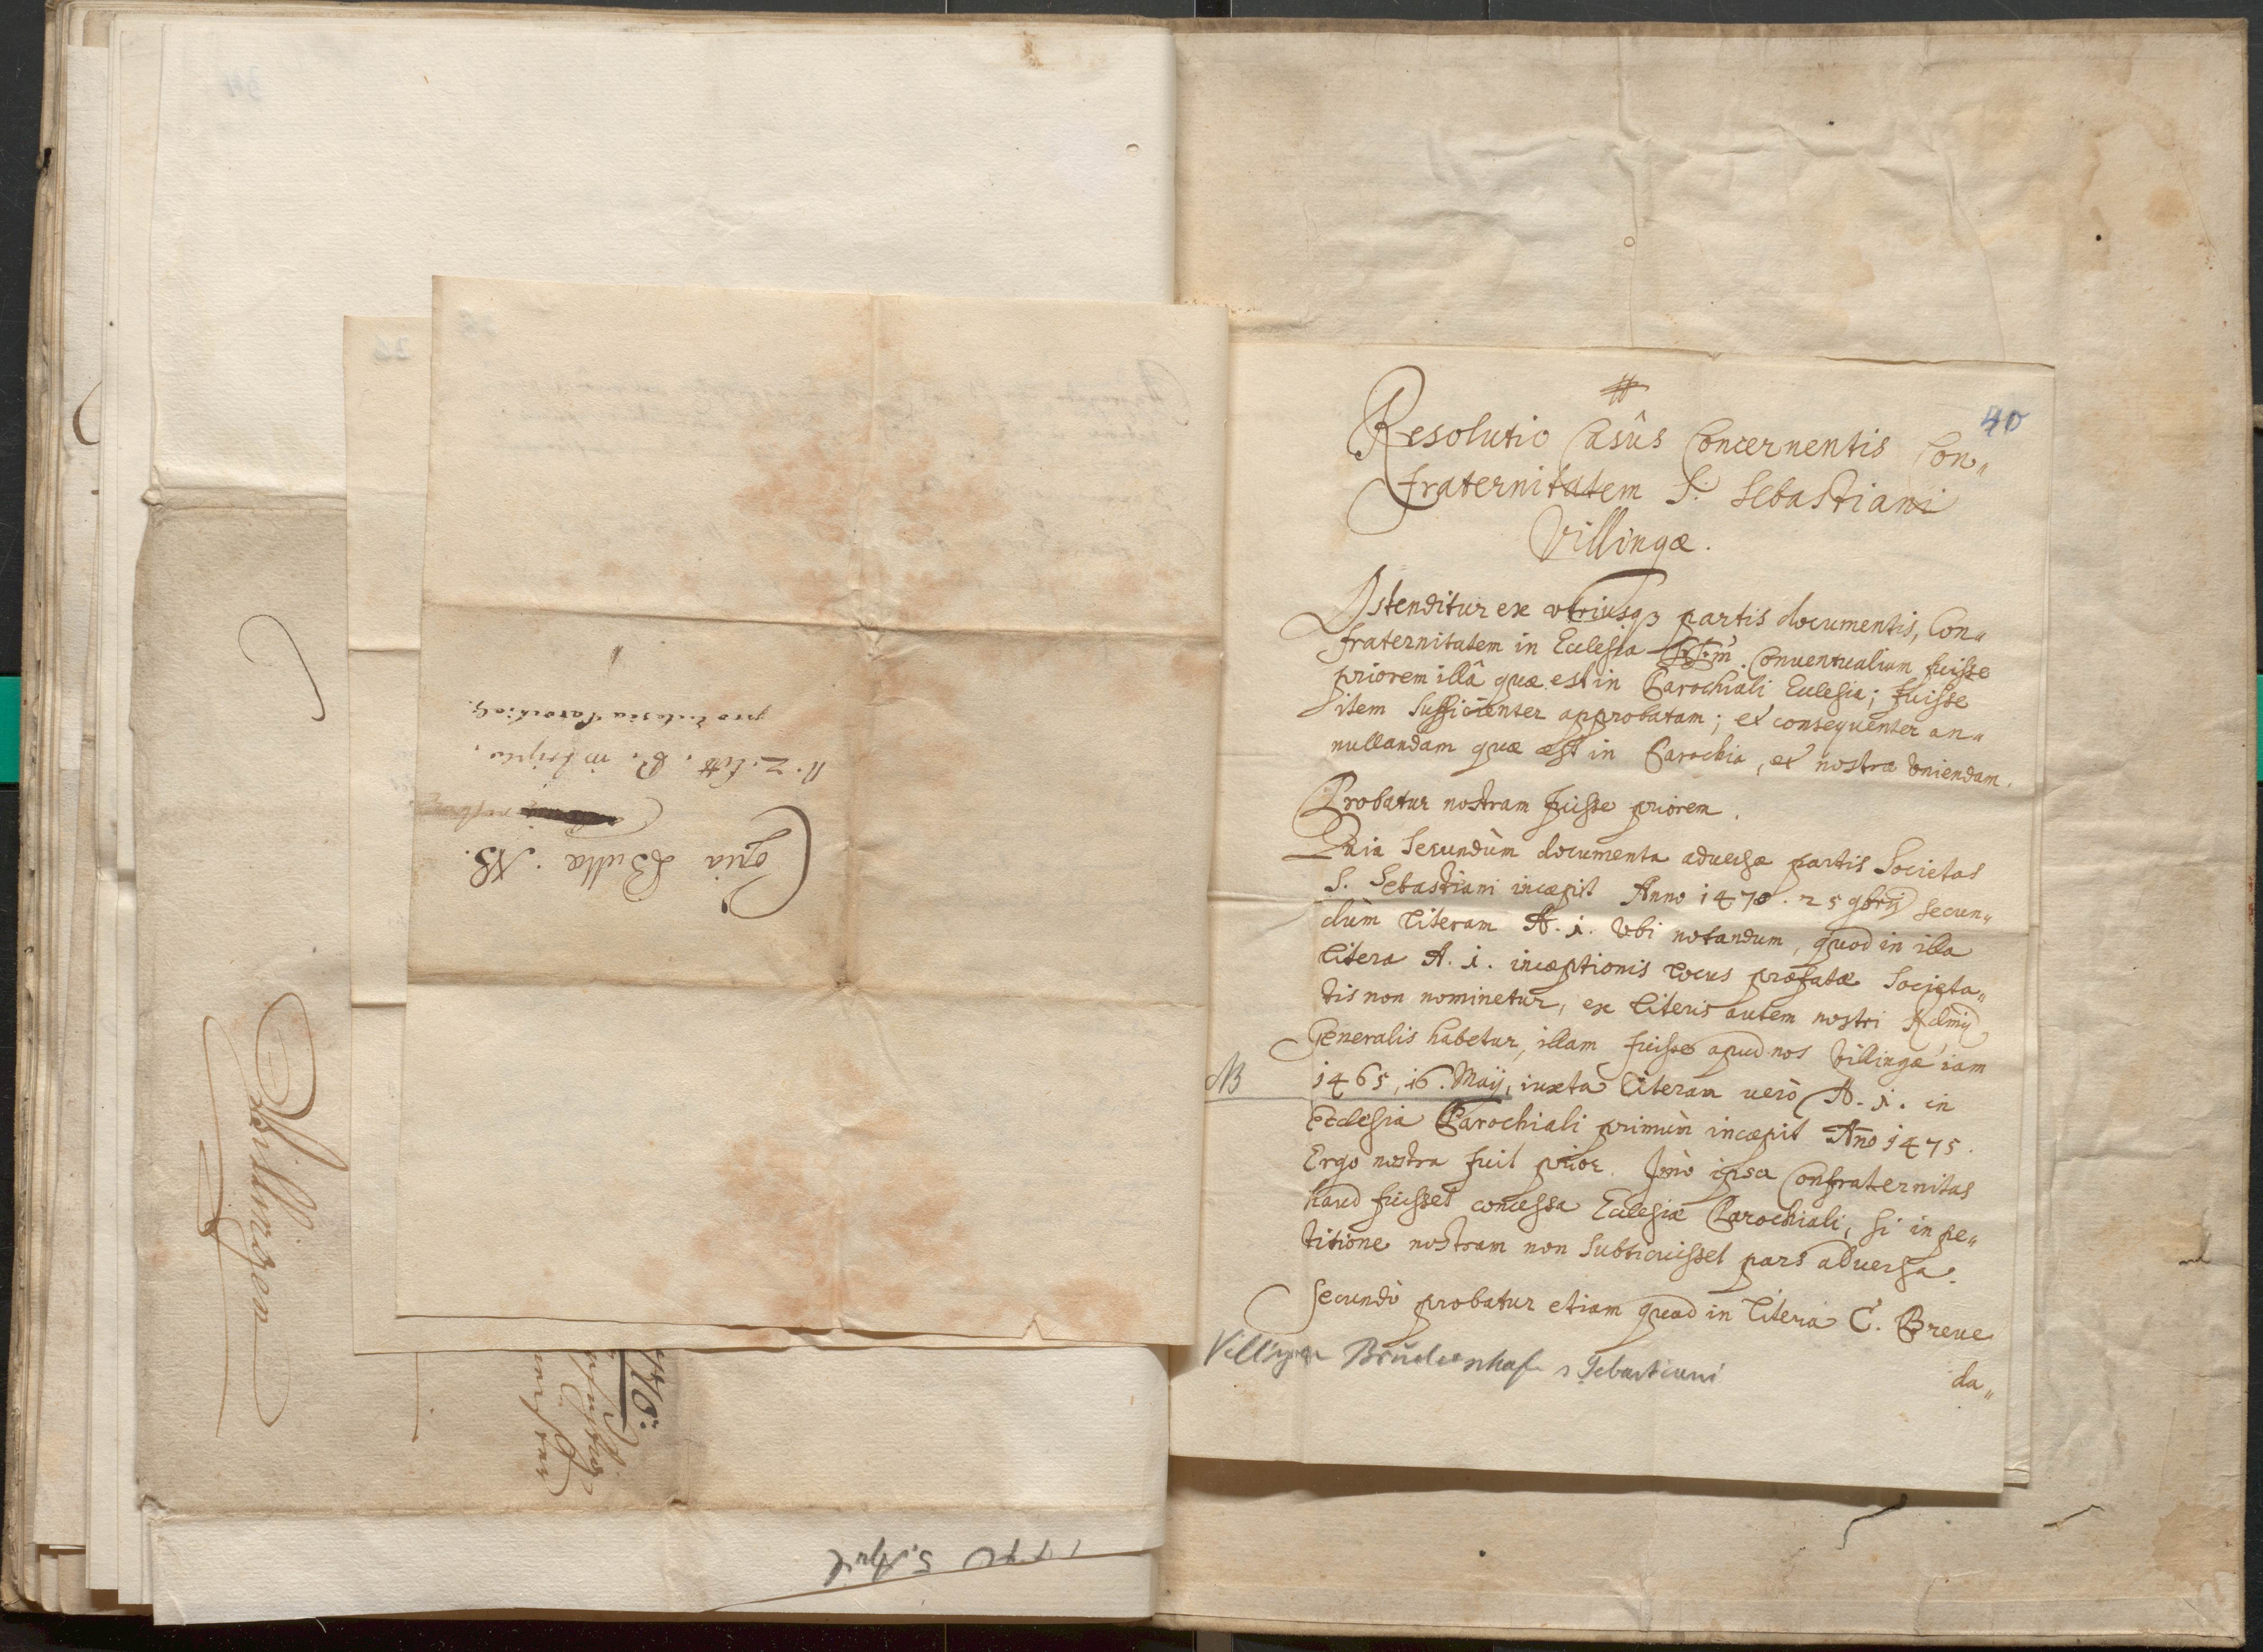 Copia Bullæ NS.
N. 2. Litt. B. in triplo.
pro Ecclesia Parochiali.
Villingen
1770 5. April
40
Resolutio Casûs Concernentis Con„
fraternitatem S. Sebastiani
Villingæ.
Ostenditur ex vtriusqꝫ partis documentis, Con„
fraternitatem in Ecclesia Conuentualium fuisse
priorem illâ quæ est in Parochiali Ecclesia; fuisse
item sufficienter approbatam; et consequenter an„
nullandam quæ est in Parochia, et nostræ vniendam.
Probatur nostram fuisse priorem.
Quia secundùm documenta aduersæ partis Societas
S. Sebastiani incæpit Anno 1470. 25 9bris secun„
dùm literam A. 1. Vbi notandum, quod in illa
litera A. 1. incæptionis locus præfatæ Societa„
tis non nominetur, ex literis autem nostri Adm̃
Generalis habetur, illam fuisse apud nos Villingæ iam
NB
1465, 16. Maij, iuxta literam uerò A. 1. in
Ecclesia Parochiali primùm incæpit Año 1475.
Ergo nostra fuit prior. Imò ipsa Confraternitas
haud fuisset concessa Ecclesiæ Parochiali, si in pe„
titione nostram non subticuisset pars aduersa.
Secundò probatur etiam quod in litera C. Breue
da„
Villingen Bruderschaft s Sebastiani